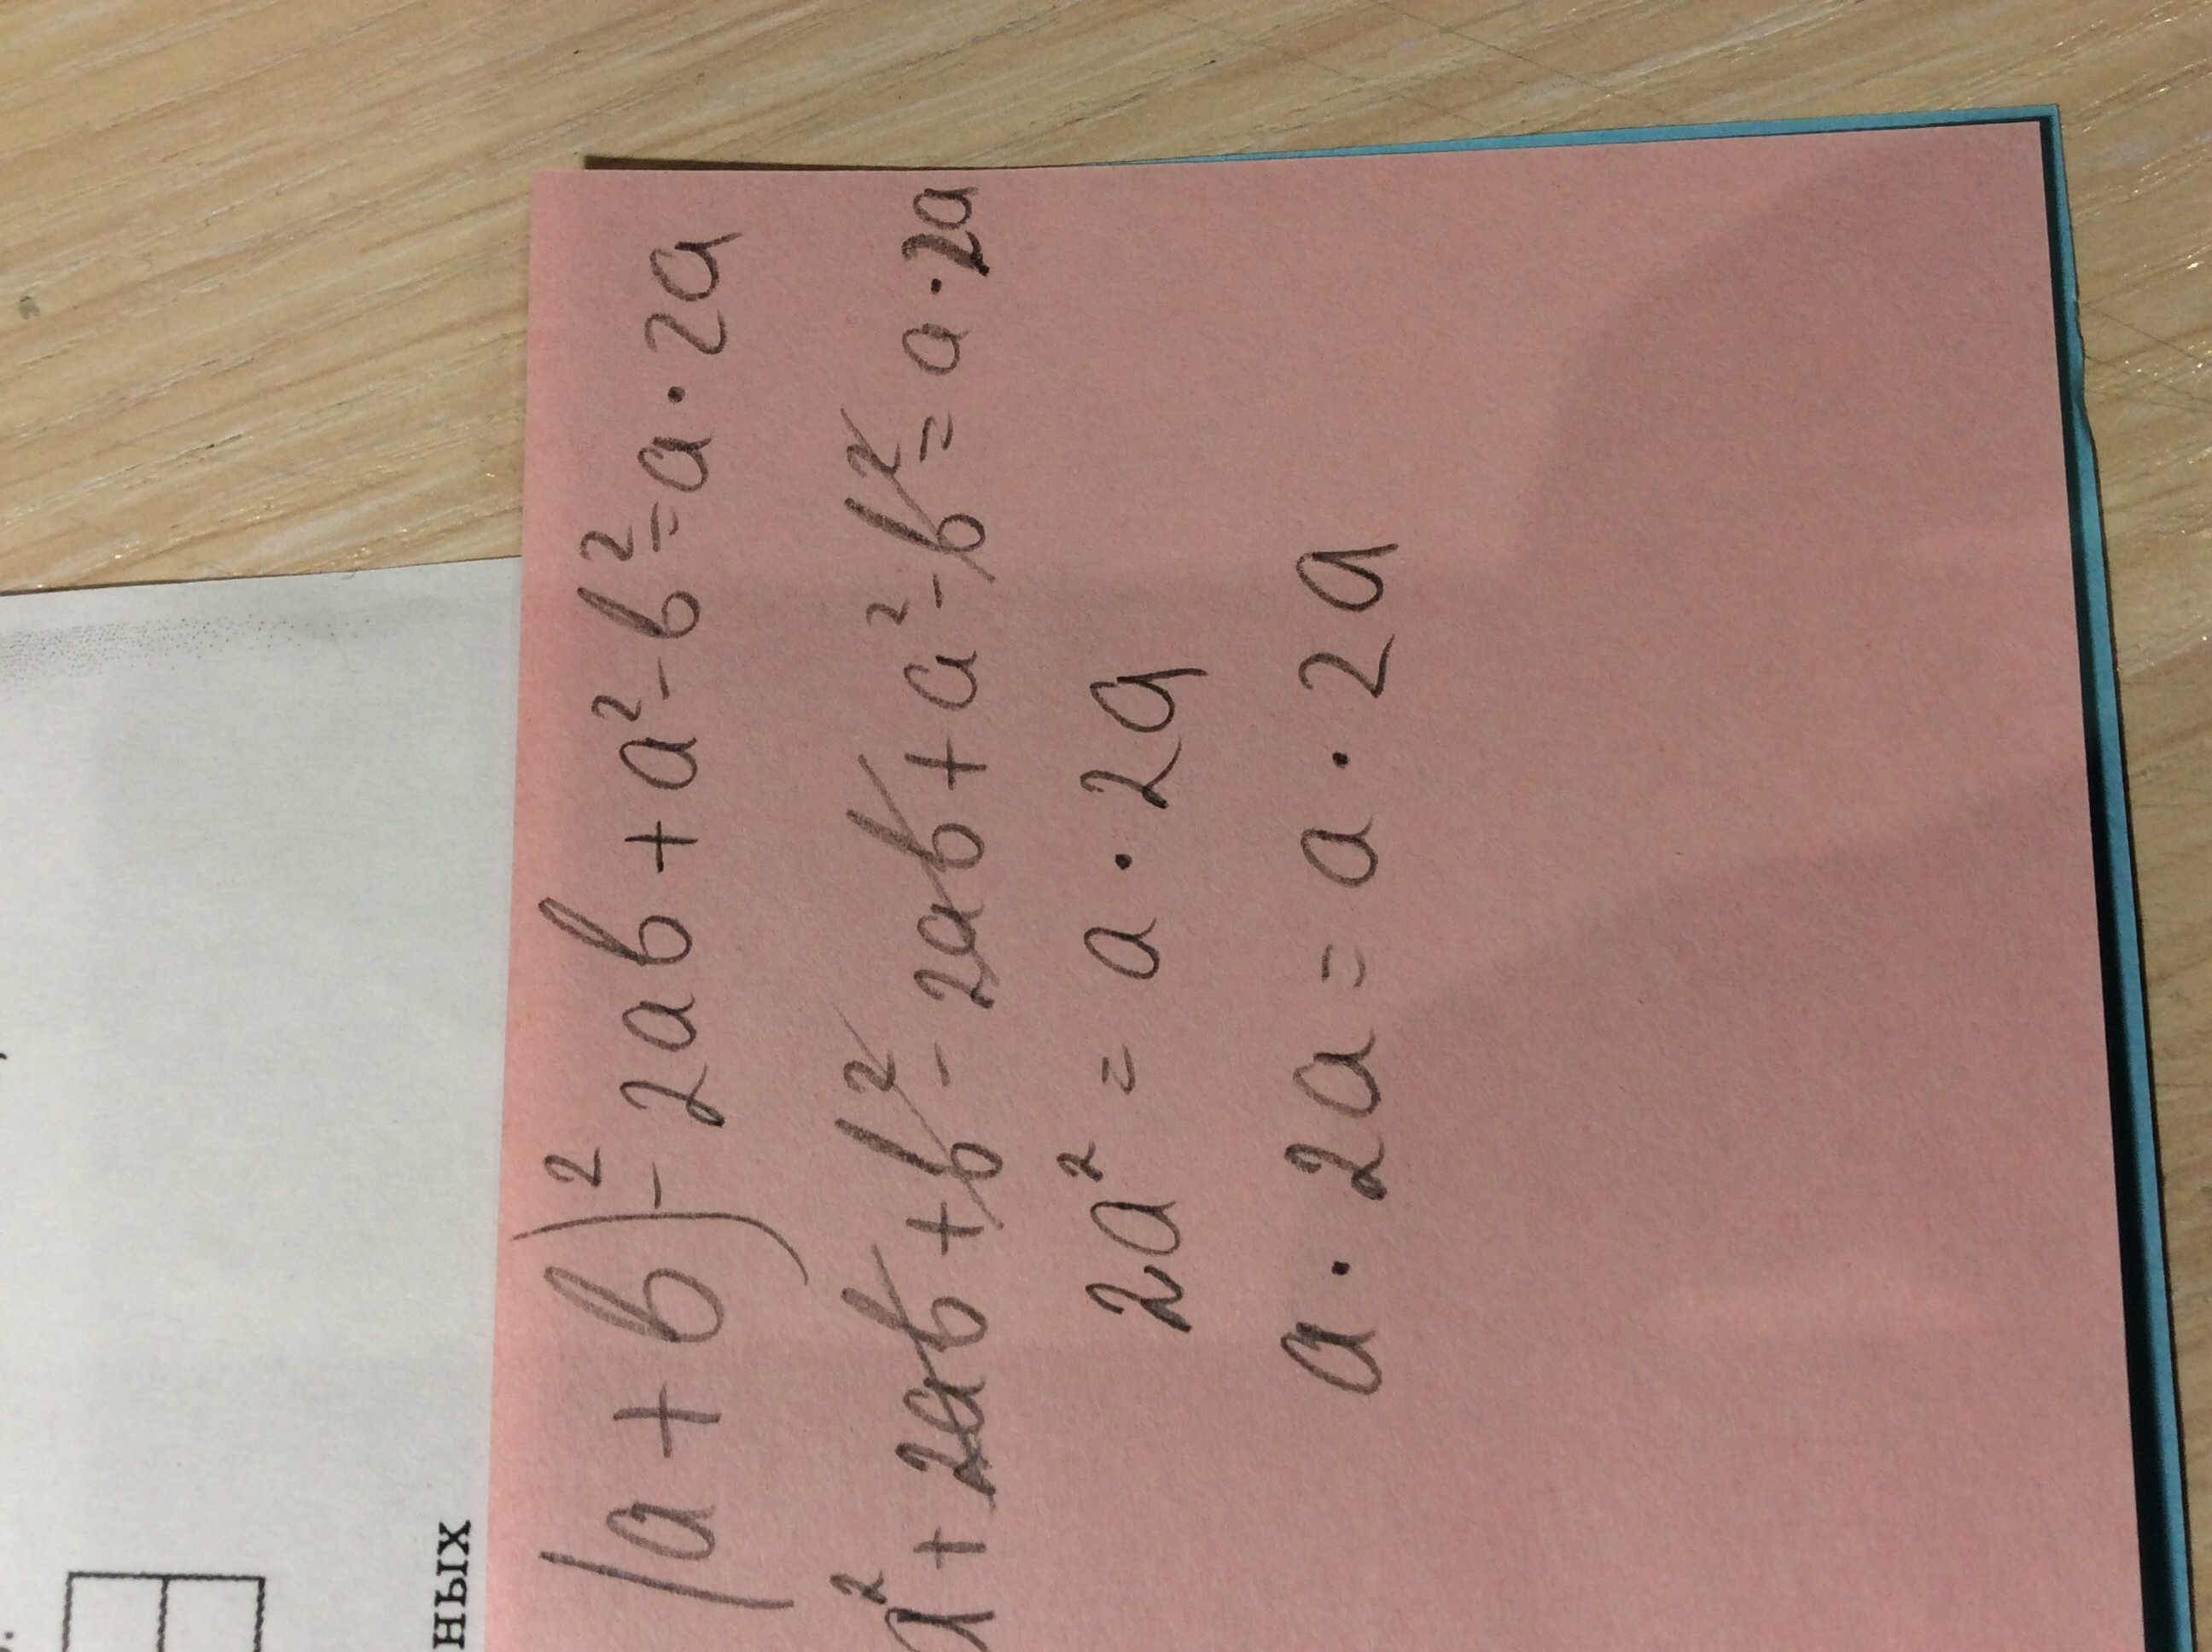 ных
(a+b)²-2ab+a²-b²=a·2a
a²+2ab+b²-2ab+a²-b²=a·2a
2a²=a·2a
a·2a=a·2a